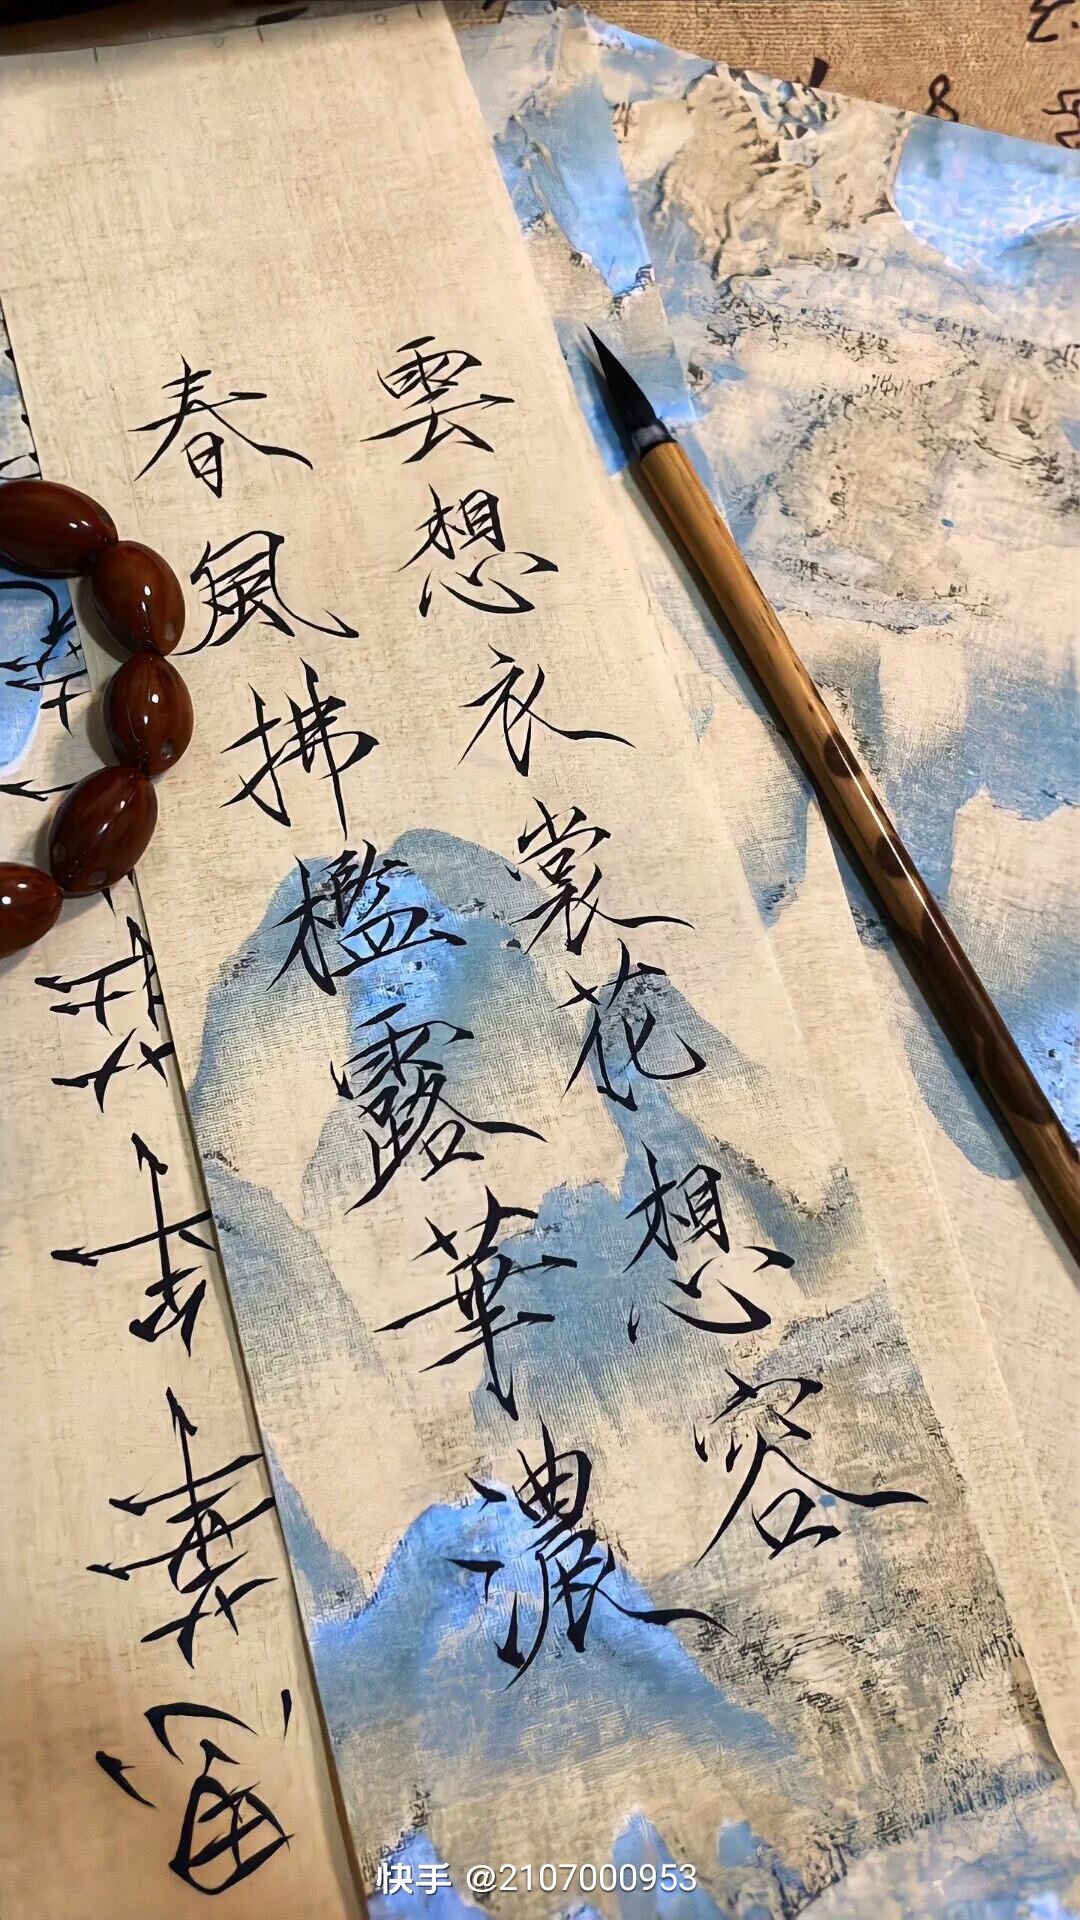 雲想衣裳花想容
春風拂檻露華濃
快手 @2107000953